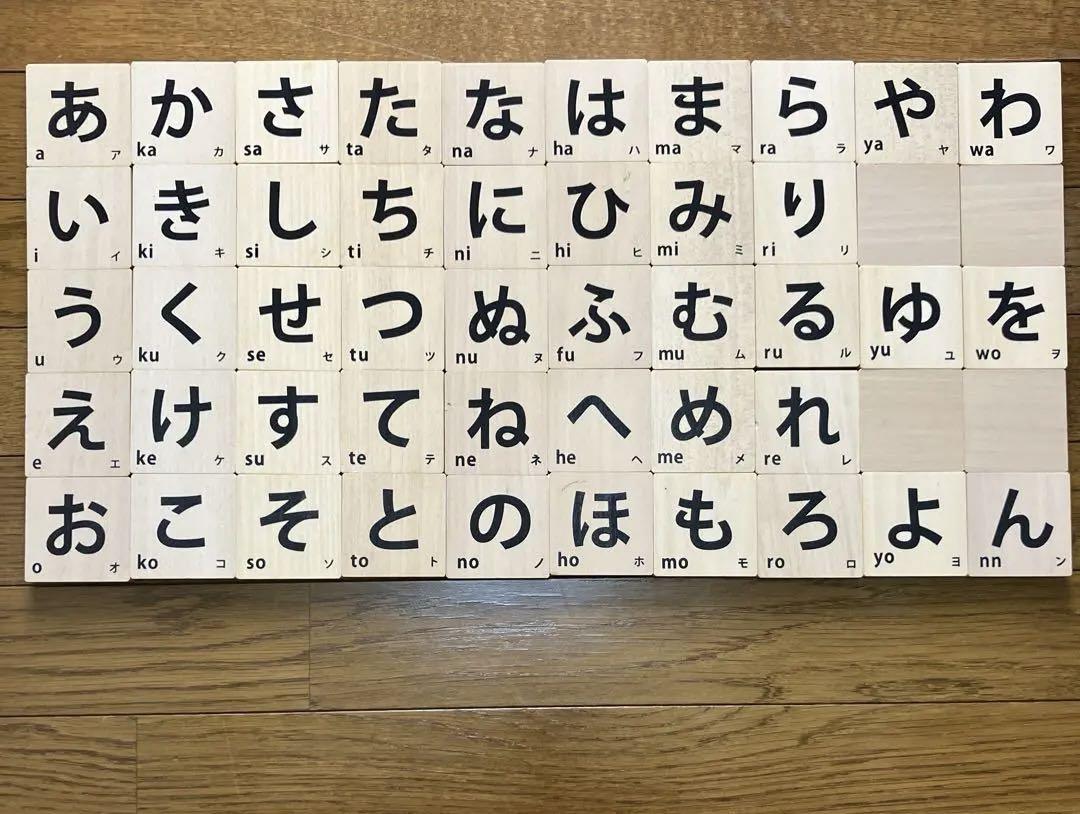 あ か さ た な は ま ら や わ
a ア ka カ sa サ ta タ na ナ ha ハ ma マ ra ラ ya ヤ wa ワ
い き し ち に ひ み り
i イ ki キ si シ ti チ ni ニ hi ヒ mi ミ ri リ
う く せ つ ぬ ふ む る ゆ を
u ウ ku ク se セ tu ツ nu ヌ fu フ mu ム ru ル yu ユ wo ヲ
え け す て ね へ め れ
e エ ke ケ su ス te テ ne ネ he ヘ me メ re レ
お こ そ と の ほ も ろ よ ん
o オ ko コ so ソ to ト no ノ ho ホ mo モ ro ロ yo ヨ nn ン